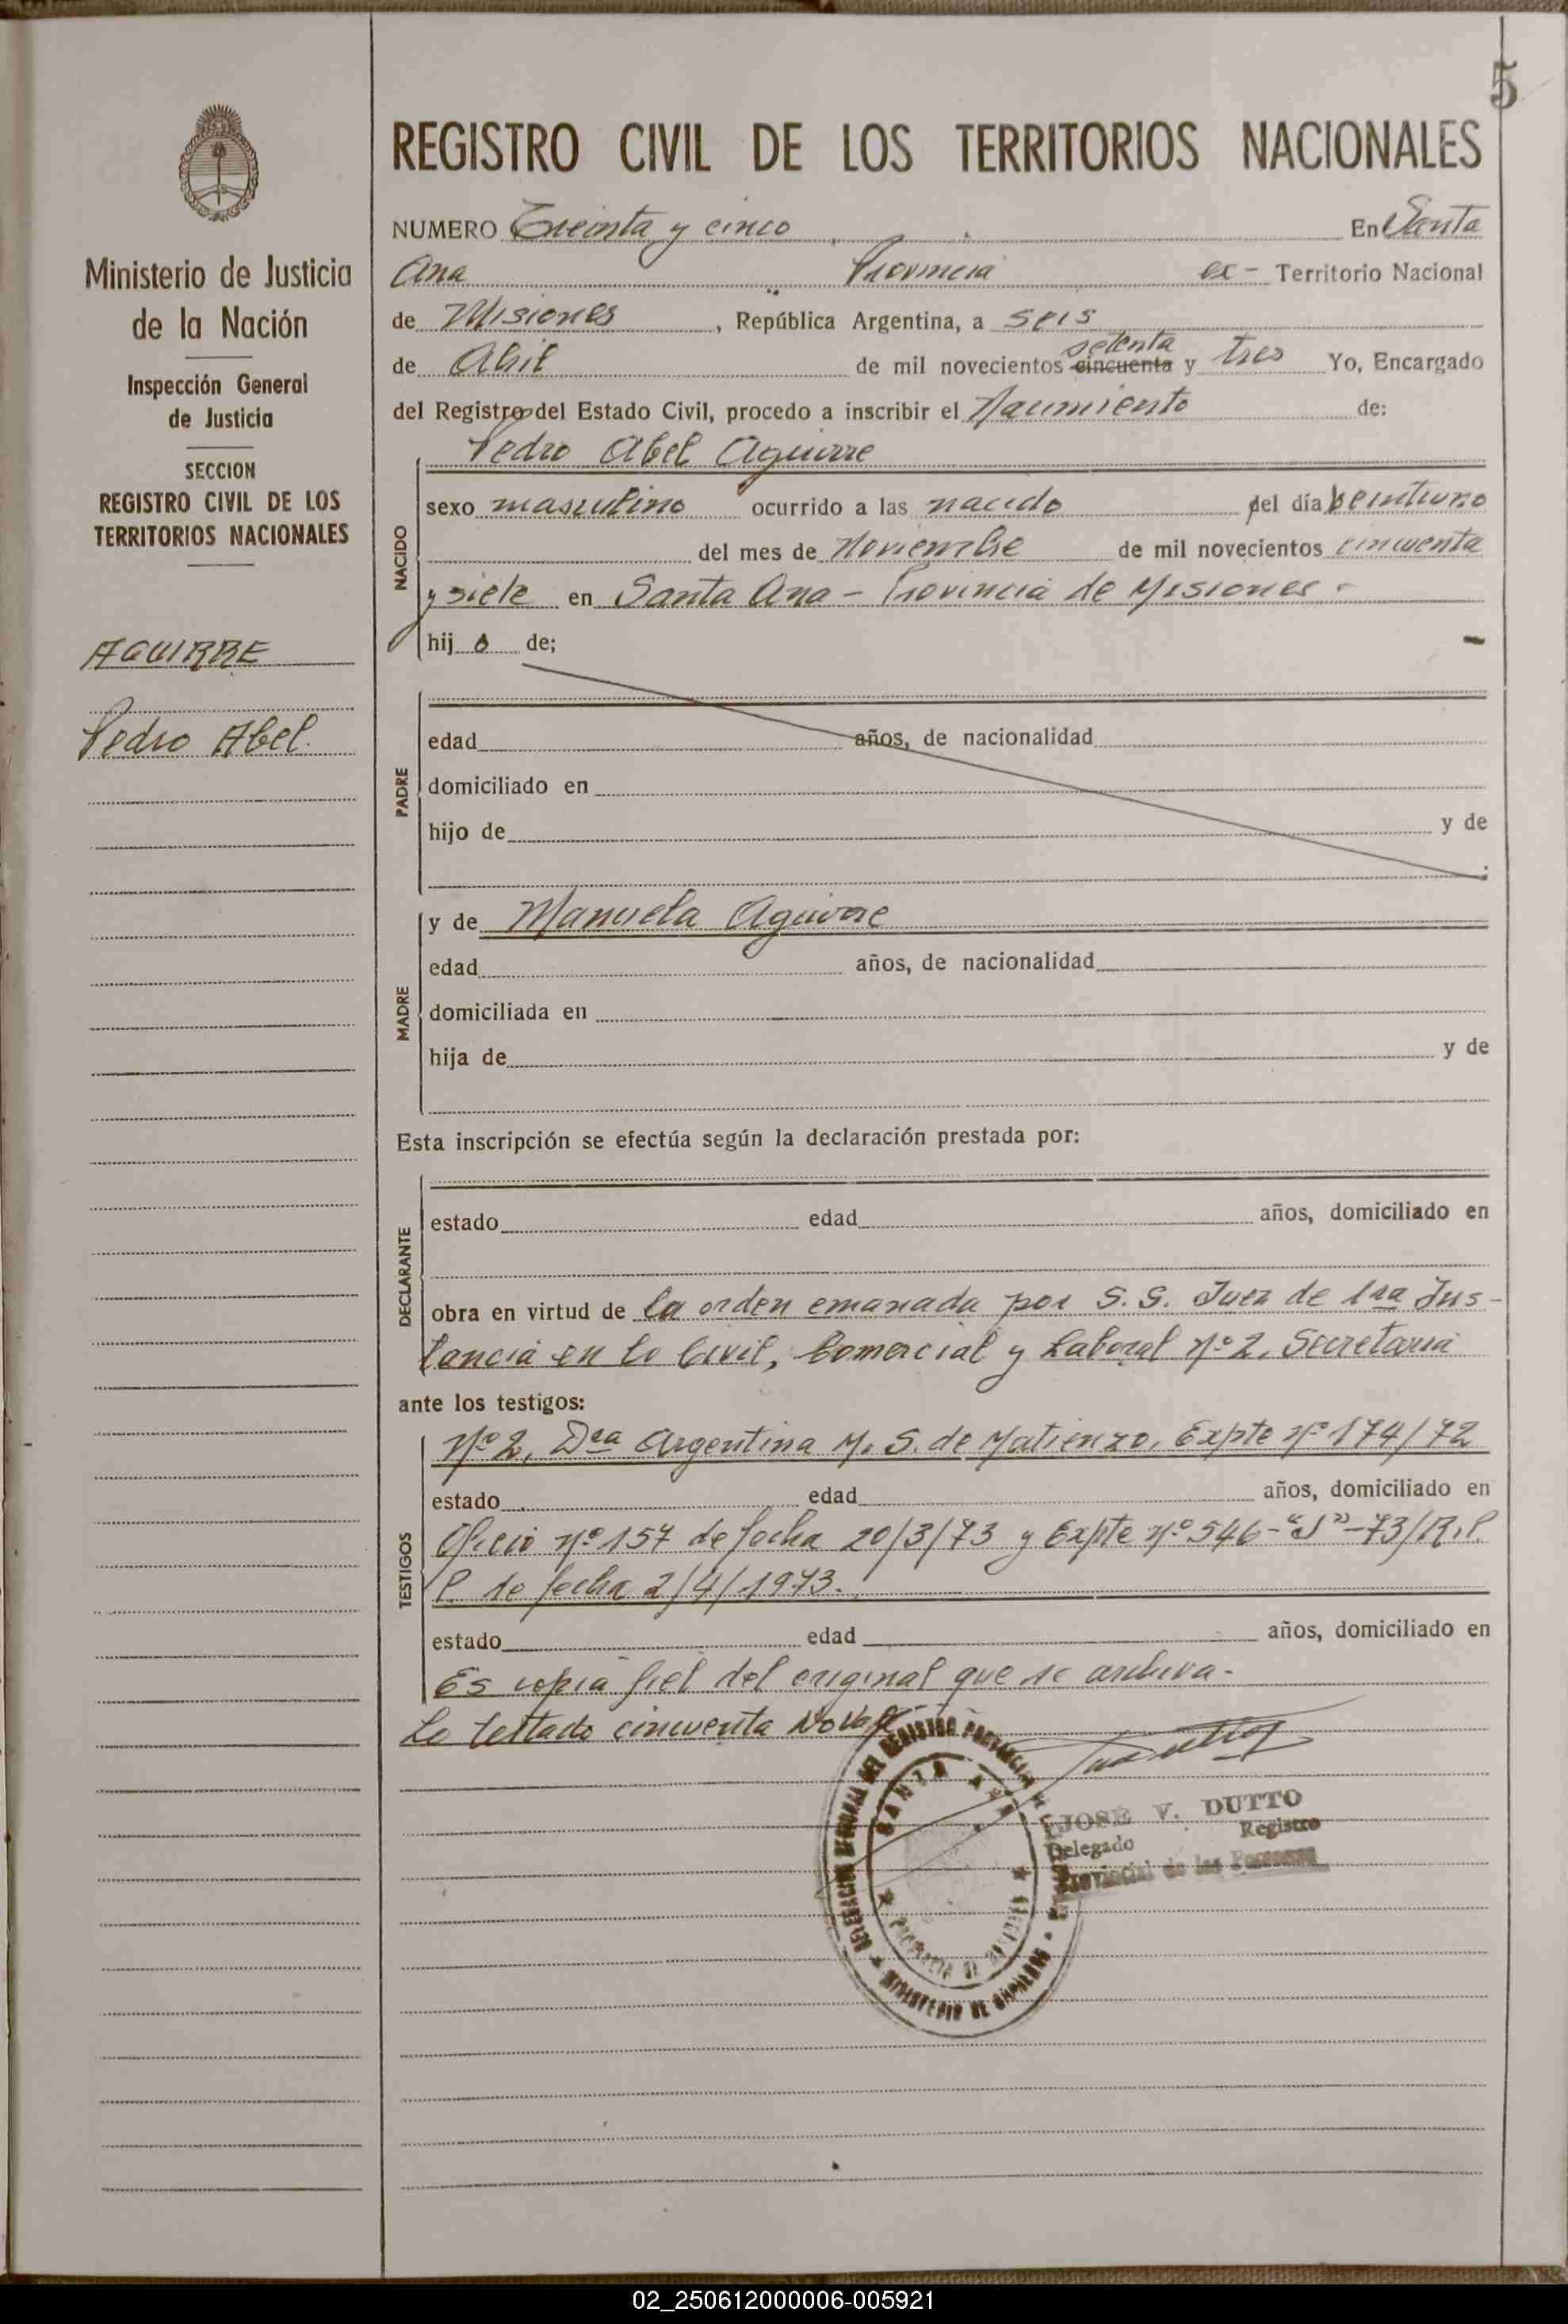 5
REGISTRO CIVIL DE LOS TERRITORIOS NACIONALES
NUMERO Treinta y cinco En Santa
Ana Provincia ex- Territorio Nacional
de Misiones, República Argentina, a seis
setenta
de Abril de mil novecientos cincuenta y tres Yo, Encargado
del Registro del Estado Civil, procedo a inscribir el Nacimiento de:
Pedro Abel Aguirre
NACIDO
sexo masculino ocurrido a las nacido del día veintiuno
del mes de Noviembre de mil novecientos cincuenta
y siete en Santa Ana - Provincia de Misiones -
hij o de;
PADRE
edad años, de nacionalidad
domiciliado en
hijo de y de
MADRE
y de Manuela Aguirre
edad años, de nacionalidad
domiciliada en
hija de y de
Esta inscripción se efectúa según la declaración prestada por:
DECLARANTE
estado edad años, domiciliado en
obra en virtud de la orden emanada por S. S. Juez de 1ra Ins-
tancia en lo Civil, Comercial y Laboral Nº 2, Secretaria
ante los testigos:
TESTIGOS
Nº 2, Dra Argentina M. S. de Matienzo, Expte Nº 174/72
estado edad años, domiciliado en
Oficio nº 157 de fecha 20/3/73 y Expte Nº 546-"J"-73/R.P.
P. de fecha 2/4/1973.
estado edad años, domiciliado en
Es copia fiel del original que se archiva.
Lo testado cincuenta No Vale
SANTA ANA
MINISTERIO DE
JOSÉ V. DUTTO
Delegado Registro
Provincial de las Personas
Ministerio de Justicia
de la Nación
Inspección General
de Justicia
SECCION
REGISTRO CIVIL DE LOS
TERRITORIOS NACIONALES
AGUIRRE
Pedro Abel.
02_250612000006-005921